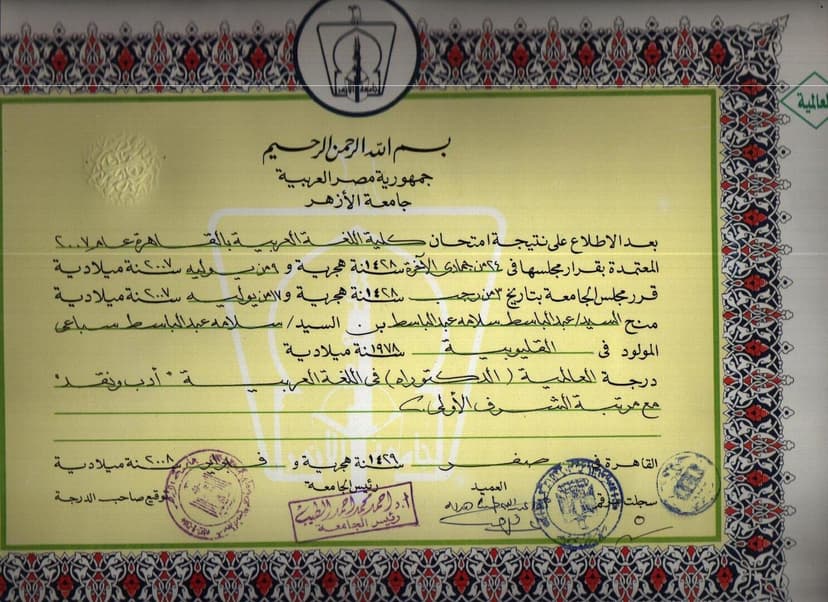 جامعة الأزهر
العالمية
بسم الله الرحمن الرحيم
جمهورية مصر العربية
جامعة الأزهر
بعد الاطلاع على نتيجة امتحان كلية اللغة العربية بالقاهرة عام ٢٠٠٧
المعتمدة بقرار مجلسها في ٢٤ من جمادى الآخرة سنة ١٤٢٨ هجرية و ٩ من يوليه سنة ٢٠٠٧ ميلادية
قرر مجلس الجامعة بتاريخ ٣ من رجب سنة ١٤٢٨ هجرية و ١٧ من يوليه سنة ٢٠٠٧ ميلادية
منح السيد/ عبد الباسط سلامه عبد الباسط بن السيد/ سلامه عبد الباسط سباعى
المولود فى القليوبية سنة ١٩٧٨ ميلادية
درجة العالمية (الدكتوراه) في اللغة العربية "أدب ونقد"
مع مرتبة الشرف الأولى
القاهرة في صفر سنة ١٤٢٩ هجرية و فبراير سنة ٢٠٠٨ ميلادية
سجلت العميد رئيس الجامعة توقيع صاحب الدرجة
أ.د/ احمد محمد احمد الطيب
رئيس الجامعة